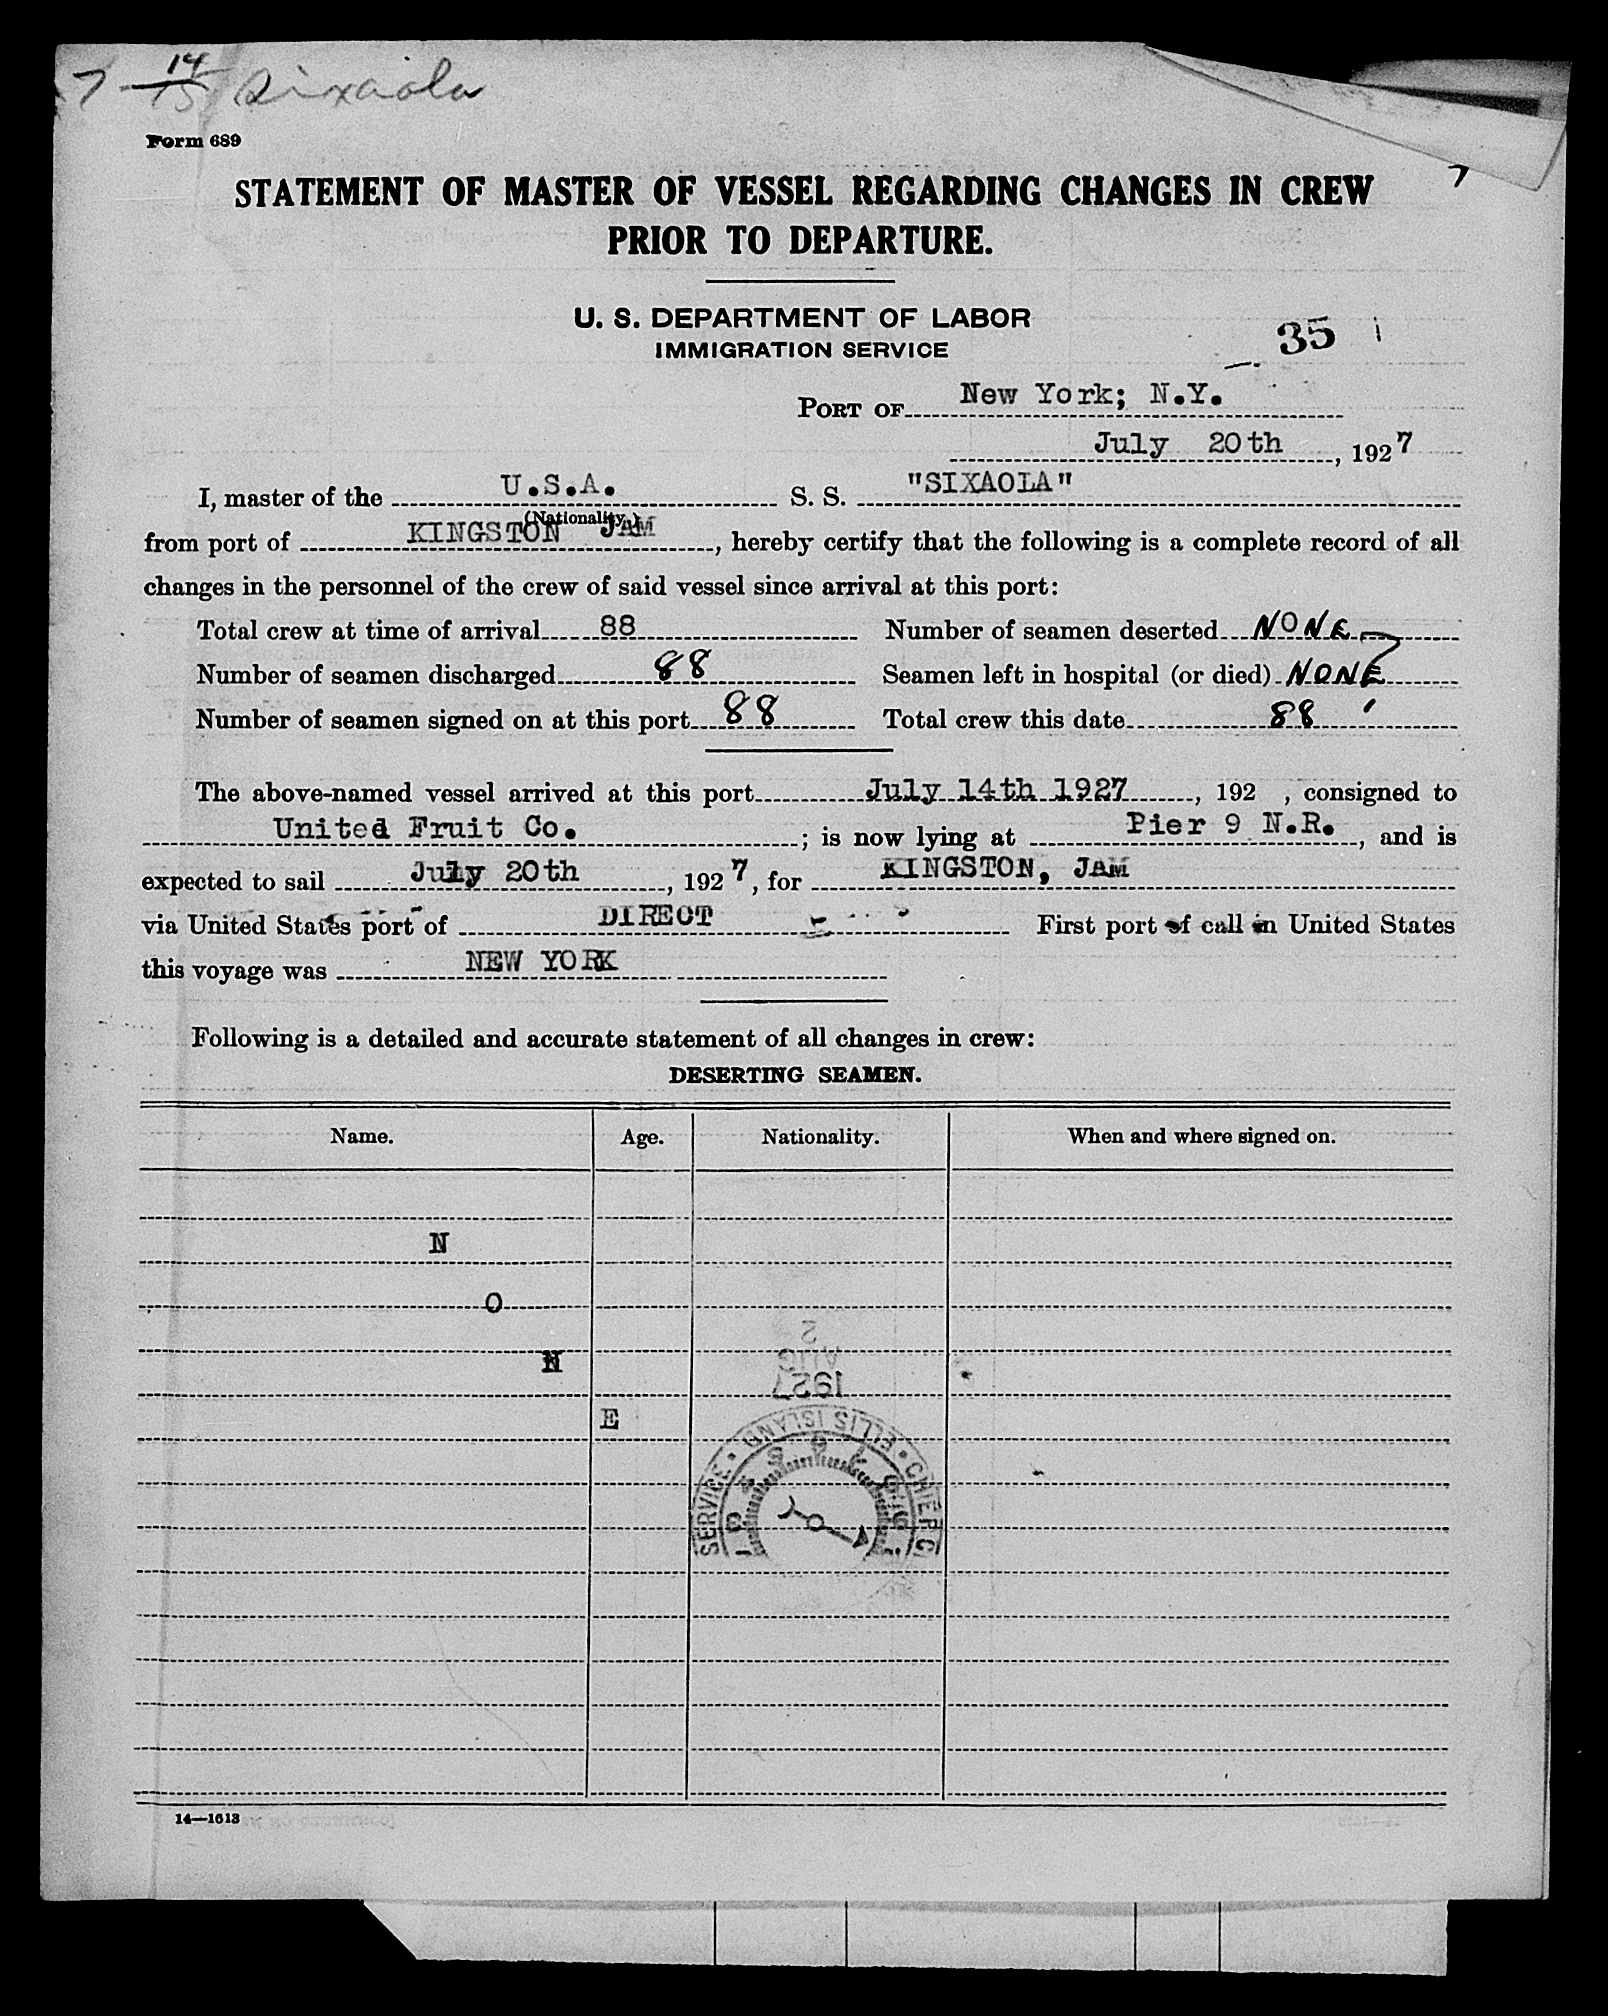 7 - 14/15 Sixaola
Form 689
STATEMENT OF MASTER OF VESSEL REGARDING CHANGES IN CREW
PRIOR TO DEPARTURE.
U. S. DEPARTMENT OF LABOR
IMMIGRATION SERVICE
35
PORT OF New York; N.Y.
July 20th, 1927
I, master of the U.S.A. S. S. "SIXAOLA"
(Nationality)
from port of KINGSTON JAM, hereby certify that the following is a complete record of all
changes in the personnel of the crew of said vessel since arrival at this port:
Total crew at time of arrival 88 Number of seamen deserted NONE
Number of seamen discharged 88 Seamen left in hospital (or died) NONE
Number of seamen signed on at this port 88 Total crew this date 88
The above-named vessel arrived at this port July 14th 1927, 192 , consigned to
United Fruit Co. ; is now lying at Pier 9 N.R., and is
expected to sail July 20th, 1927, for KINGSTON, JAM
via United States port of DIRECT First port of call in United States
this voyage was NEW YORK
Following is a detailed and accurate statement of all changes in crew:
DESERTING SEAMEN.
Name. Age. Nationality. When and where signed on.
N
O
N
E
2
AUG
1927
SERVICE • ELLIS ISLAND • CHIEF C
14—1613